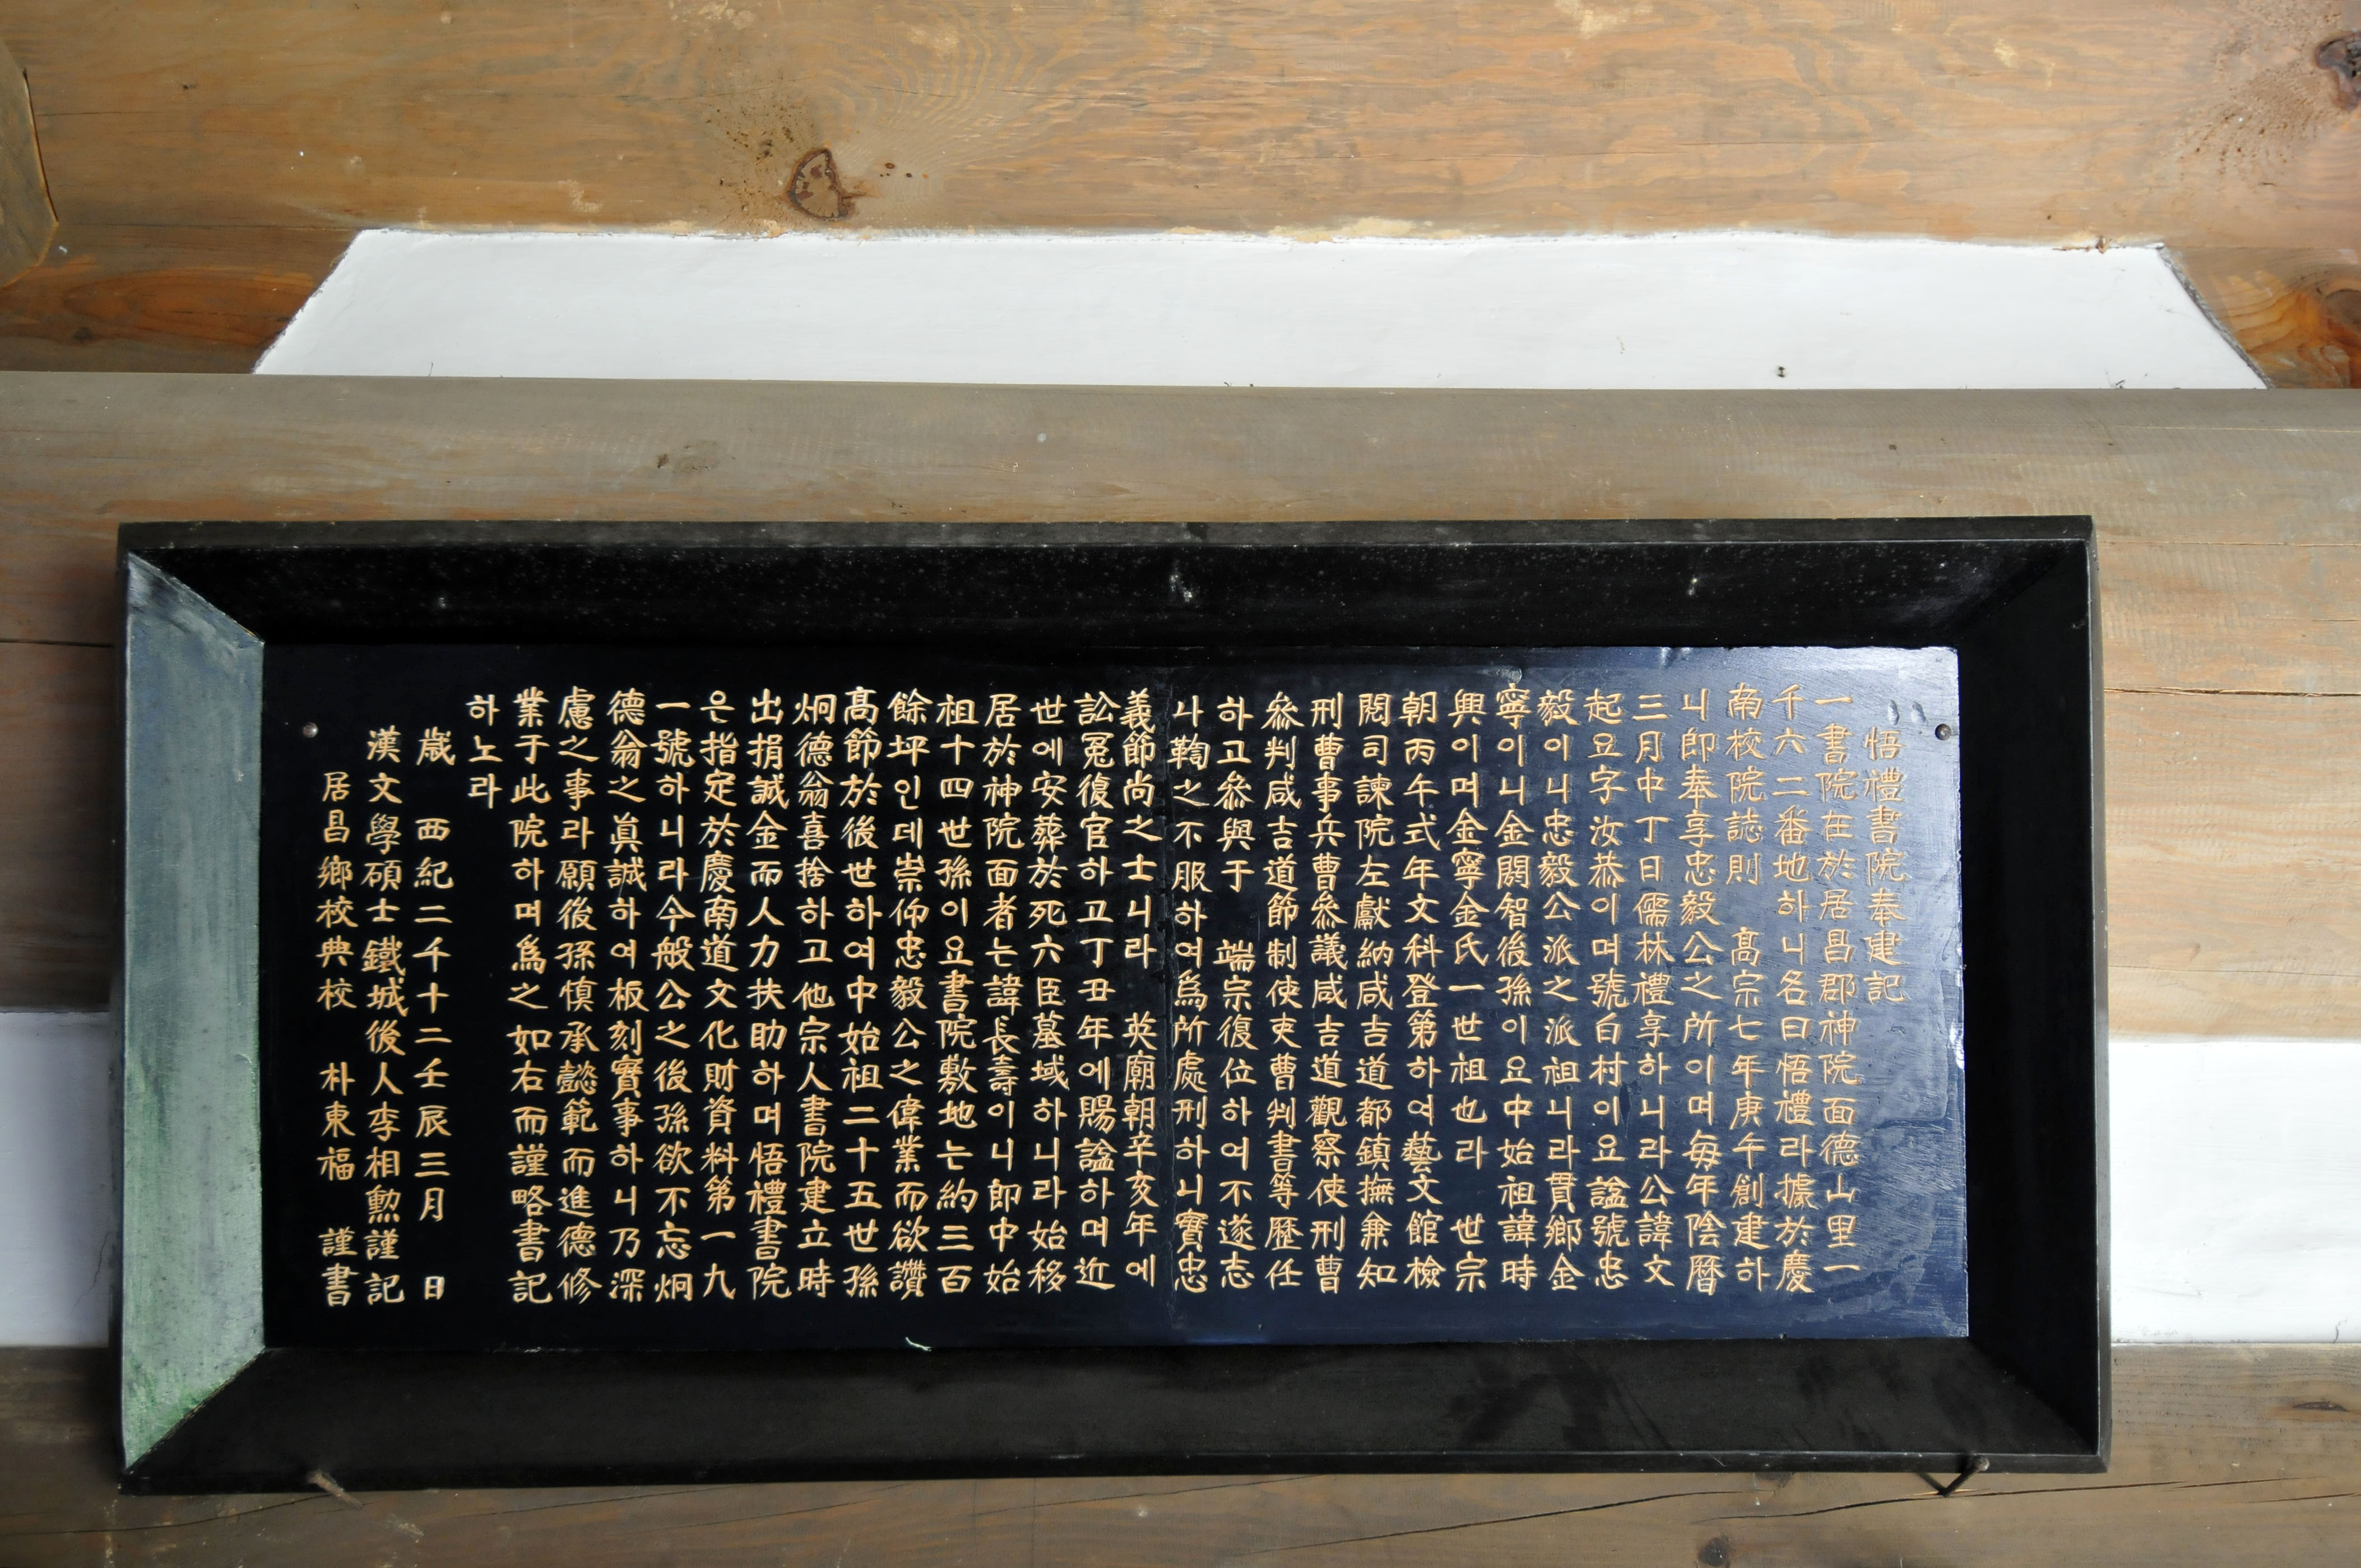 悟禮書院奉建記
一書院在於居昌郡神院面德山里一
千六二番地하니名曰悟禮라據於慶
南校院誌則 高宗七年庚午創建하
니卽奉享忠毅公之所이며每年陰曆
三月中丁日儒林禮享하니라公諱文
起요字汝恭이며號白村이요諡號忠
毅이니忠毅公派之派祖니라貫鄉金
寧이니金閼智後孫이요中始祖諱時
興이며金寧金氏一世祖也라 世宗
朝丙午式年文科登第하여藝文館檢
閱司諫院左獻納咸吉道都鎭撫兼知
刑曹事兵曹參議咸吉道觀察使刑曹
參判咸吉道節制使吏曹判書等歷任
하고參與于 端宗復位하여不遂志
나鞫之不服하여爲所處刑하니實忠
義節尚之士니라 英廟朝辛亥年에
訟冤復官하고丁丑年에賜諡하며近
世에安葬於死六臣墓域하니라始移
居於神院面者는諱長壽이니卽中始
祖十四世孫이요書院敷地는約三百
餘坪인데崇仰忠毅公之偉業而欲讚
高節於後世하여中始祖二十五世孫
炯德翁喜捨하고他宗人書院建立時
出捐誠金而人力扶助하며悟禮書院
은指定於慶南道文化財資料第一九
一號하니라今般公之後孫欲不忘炯
德翁之眞誠하여板刻實事하니乃深
慮之事라願後孫愼承懿範而進德修
業于此院하며爲之如右而謹略書記
하노라
歲 西紀二千十二壬辰三月 日
漢文學碩士鐵城後人李相勲謹記
居昌鄉校典校 朴東福 謹書